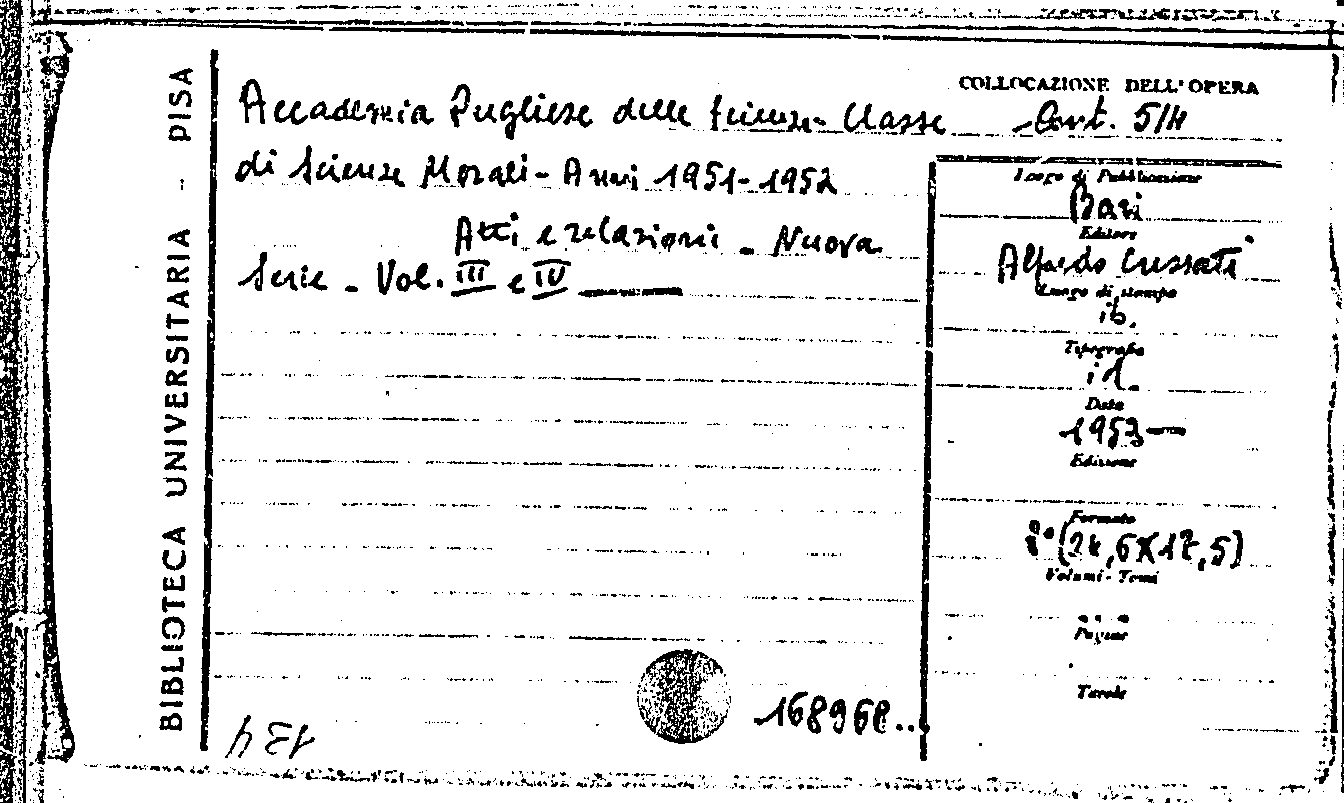 BIBLIOTECA UNIVERSITARIA - PISA
COLLOCAZIONE DELL'OPERA
Accademia Pugliese delle Scienze - Classe
Cont. 5/4
di Scienze Morali - Anni 1951-1952
Atti e relazioni - Nuova
Serie - Vol. III e IV
Luogo di Pubblicazione
Bari
Editore
Alfredo Cressati
Luogo di stampa
ib.
Tipografo
id.
Data
1953
Edizione
Formato
8° (24,5X17,5)
Volumi - Tomi
Pagine
Tavole
168968